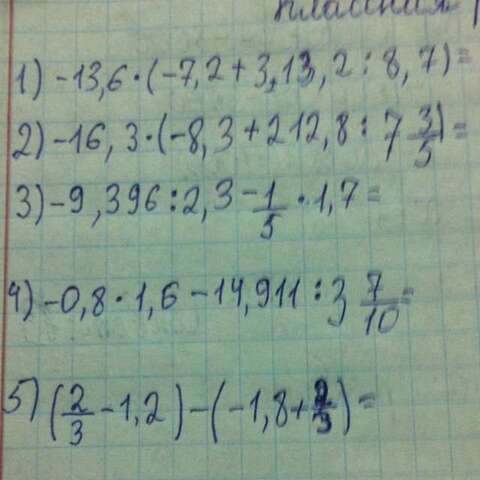 классная
1) -13,6·(-7,2+3,13,2:8,7)=
2) -16,3·(-8,3+212,8:7 3/5)=
3) -9,396:2,3-1/5·1,7=
4) -0,8·1,6-14,911:3 7/10=
5) (2/3-1,2)-(-1,8+2/3)=